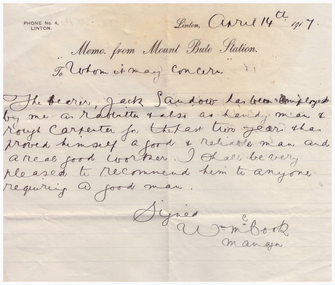 PHONE No. 4,
LINTON.
Linton, April 14th 1917.
Memo. from Mount Bute Station.
"To Whom it may Concern"
The bearer, Jack Sandow has been employed
by me as Rabbiter & also as handy man &
rough Carpenter for the last two years & has
proved himself a good & reliable man and
a real good worker. I shall be very
pleased to recommend him to anyone
requiring a good man.
Signed
Wm McCook
Manager